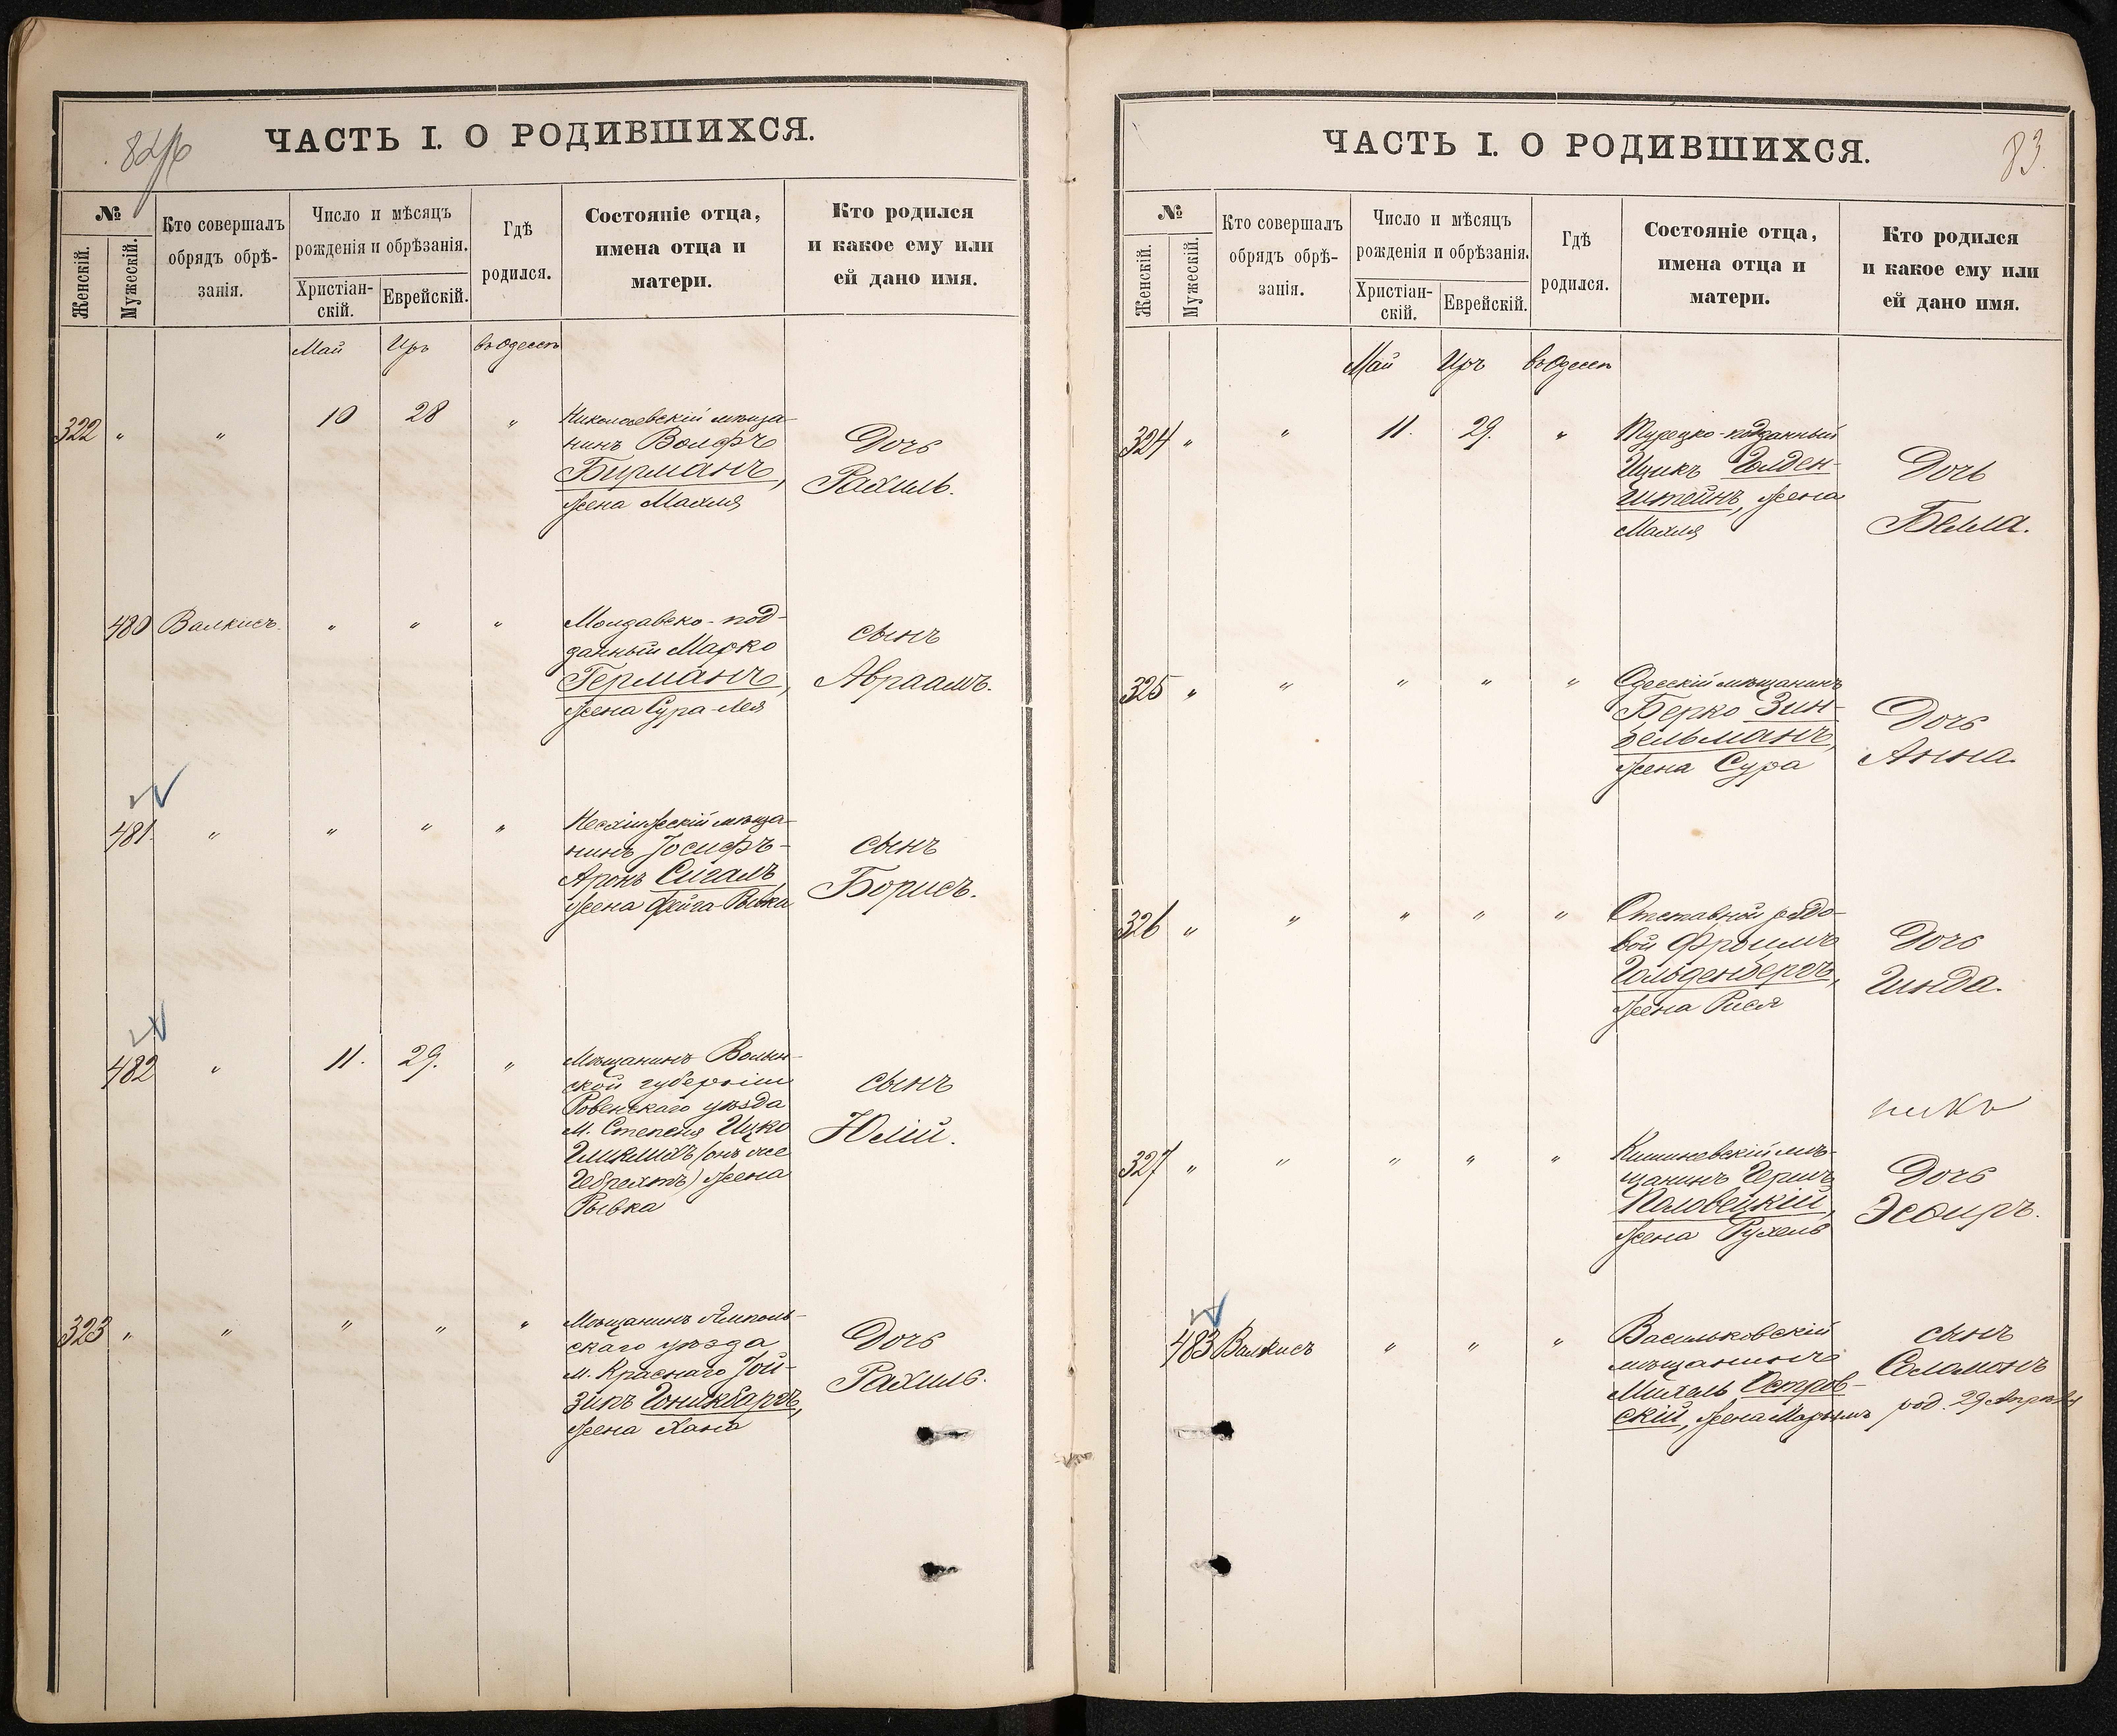 82об
ЧАСТЬ I. О РОДИВШИХСЯ.
№
Женскій.
Мужескій.
Кто совершалъ
обрядъ обрѣ-
занія.
Число и мѣсяцъ
рожденія и обрѣзанія.
Христіан-
скій.
Еврейскій.
Гдѣ
родился.
Состояніе отца,
имена отца и
матери.
Кто родился
и какое ему или
ей дано имя.
Май Иръ въ Одессѣ
322 " " 10 28 "
Николаевскій мѣща-
нинъ Волфъ
Бирманъ,
жена Махля
Дочь
Рахиль.
480 Валкисъ. " " "
Молдавско-под-
данный Марко
Германъ,
жена Сура-Лея
сынъ
Авраамъ.
481. " " " "
мѣща-
нинъ Іосифъ-
Аронъ Сигалъ
жена Фейга-Рывка
сынъ
Борисъ.
482 " 11. 29. "
Мѣщанинъ Волын-
ской губерніи
Ровенскаго уѣзда
М. Степеня Ицко
(онъ же
жена
Рывка
сынъ
Юлій.
323 " " " " "
Мѣщанинъ Ямполь-
скаго уѣзда
м. Краснаго Іой-
жена Хана
Дочь
Рахиль.
83.
ЧАСТЬ I. О РОДИВШИХСЯ.
№
Женскій.
Мужескій.
Кто совершалъ
обрядъ обрѣ-
занія.
Число и мѣсяцъ
рожденія и обрѣзанія.
Христіан-
скій.
Еврейскій.
Гдѣ
родился.
Состояніе отца,
имена отца и
матери.
Кто родился
и какое ему или
ей дано имя.
Май Иръ въ Одессѣ
324 " " 11. 29. "
Турецко-подданный
Ицикъ Голден-
штейнъ, жена
Махля
Дочь
Бейла.
325 " " " " "
Одесскій мѣщанинъ
Берко Зин-
гельманъ,
жена Сура
Дочь
Анна.
326 " " " " "
Отставной рядо-
вой Фроимъ
Гольденбергъ,
жена Рися
Дочь
Гинда.
327 " " " " "
Кишиневскій мѣ-
щанинъ Гершъ
Половецкій,
жена Рухель
Дочь
Эсѳирь.
483 Валкисъ " " "
Васильковскій
мѣщанинъ
Михель Остров-
скій, жена Марьямъ
сынъ
Соломонъ
род. 29 Апрѣля